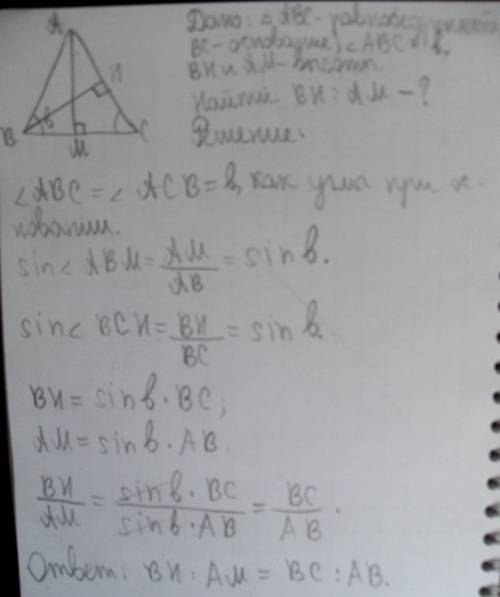 Дано: △ ABC - равнобедренный
BC - основание, ∠ABC = b.
BH и AM - высоты
Найти: BH : AM - ?
Решение:
A
H
B
b
M
C
∠ABC = ∠ ACB = b, как углы при ос-
новании.
sin∠ ABM = AM/AB = sin b.
sin∠ BCH = BH/BC = sin b.
BH = sin b · BC;
AM = sin b · AB.
BH/AM = sin b · BC/sin b · AB = BC/AB.
Ответ: BH : AM = BC : AB.